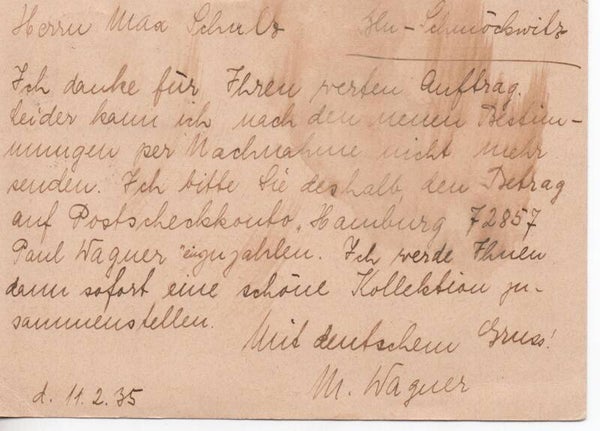 Herrn Max Schulz Bln-Schmöckwitz
Ich danke für Ihren werten Auftrag.
Leider kann ich nach den neuen Bestim-
mungen per Nachnahme nicht mehr
senden. Ich bitte Sie deshalb den Betrag
auf Postscheckkonto „Hamburg 72857
Paul Wagner" einzuzahlen. Ich werde Ihnen
dann sofort eine schöne Kollektion zu-
sammenstellen.
Mit deutschem Gruss!
M. Wagner
d. 11.2.35